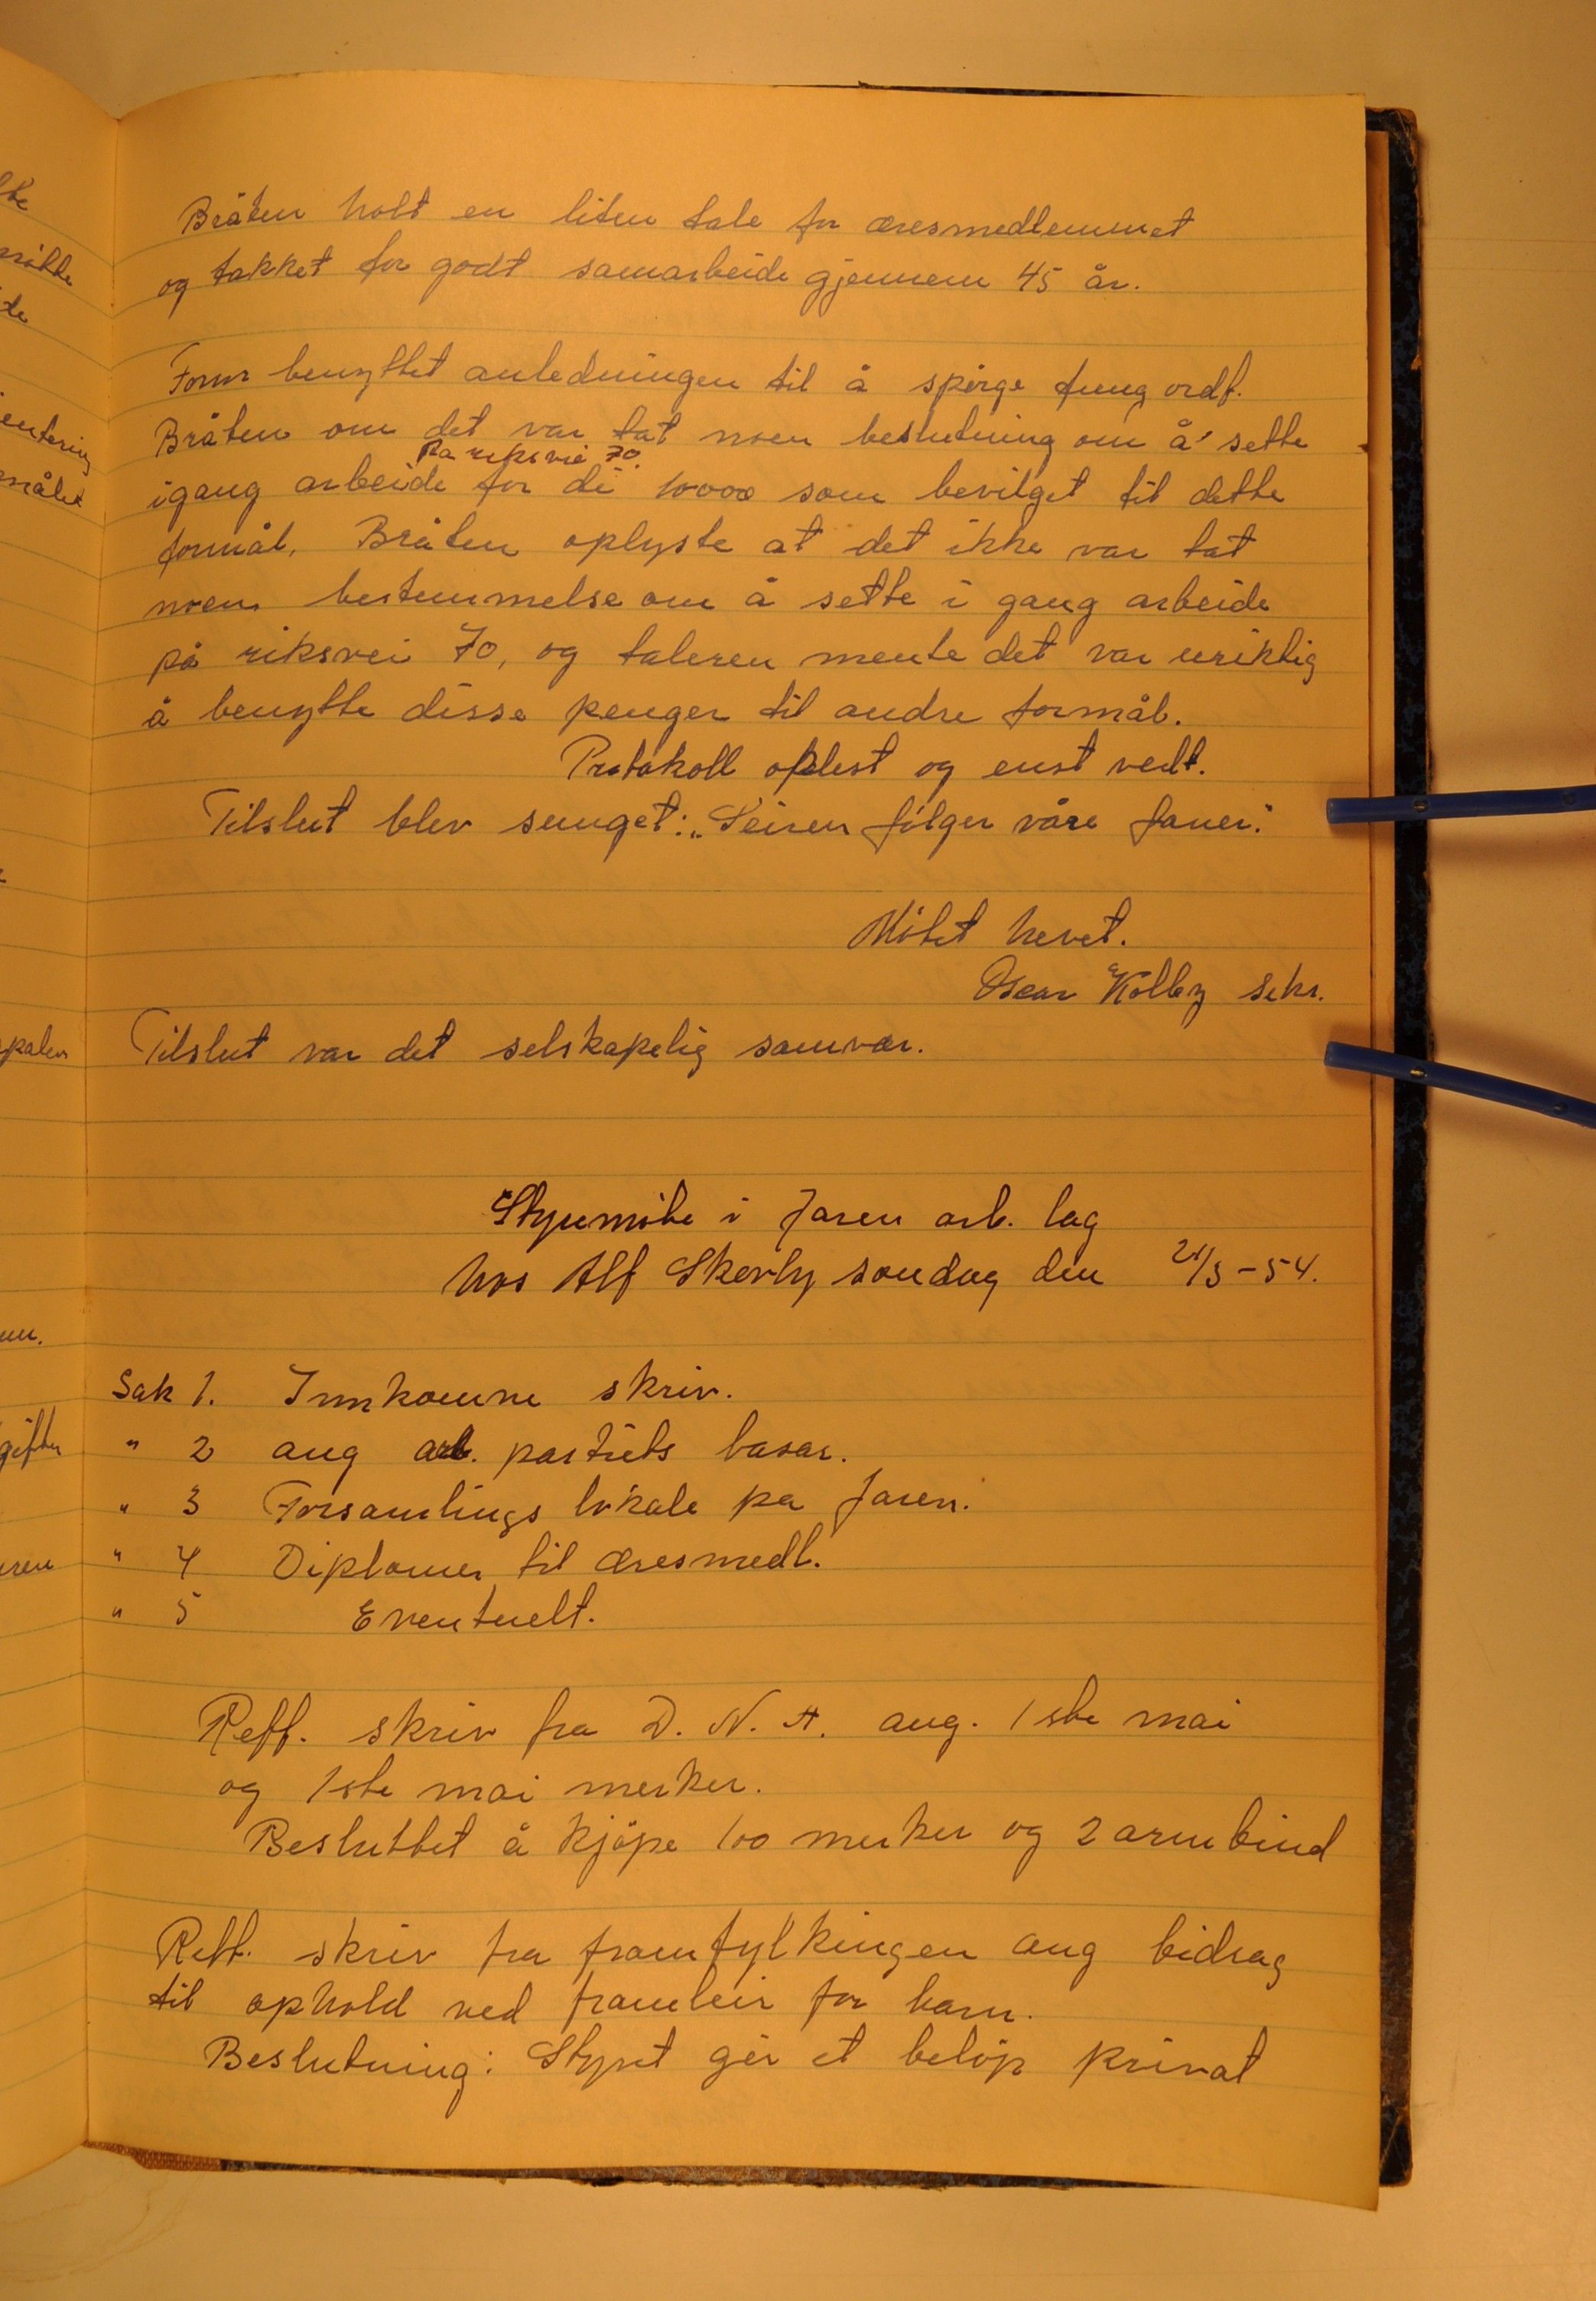 Bråten holt en liten tale for æresmedlemmet
og takket for godt samarbeide gjennem 45 år.
Form benyttet anledningen til å spörge fung ordf.
Bråten om det var tat noen beslutning om å sette
På riksvei 70.
igang arbeide for de 10000 som bevilget til dette
formål. Bråten oplyste at det ikke var tat
noen bestemmelse om å sette i gang arbeide
på riksvei 70, og taleren mente det var uriktig
å benytte disse penger til andre formål.
Protokoll oplest og enst vedt.
Tilslut blev sunget: „Seiren fölger våre faner."
Mötet hevet.
Oscar Kolby sekr.
Tilslut var det selskapelig samvær.
Styremöte i Jaren arb. lag
hos Alf Skerly söndag den 21/3-54.
Sak 1. Innkomne skriv.
" 2 ang arb. partiets basar.
" 3 Forsamlings lokale på Jaren.
" 4 Diplomer til æresmedl.
" 5 Eventuelt.
Reff. skriv fra D. N. A. ang. 1ste mai
og 1ste mai merker.
Besluttet å kjöpe 100 merker og 2 armbind
Reff. skriv fra framfylkingen ang bidrag
til ophold ved framleir for barn.
Beslutning: Styret gir et belöp privat